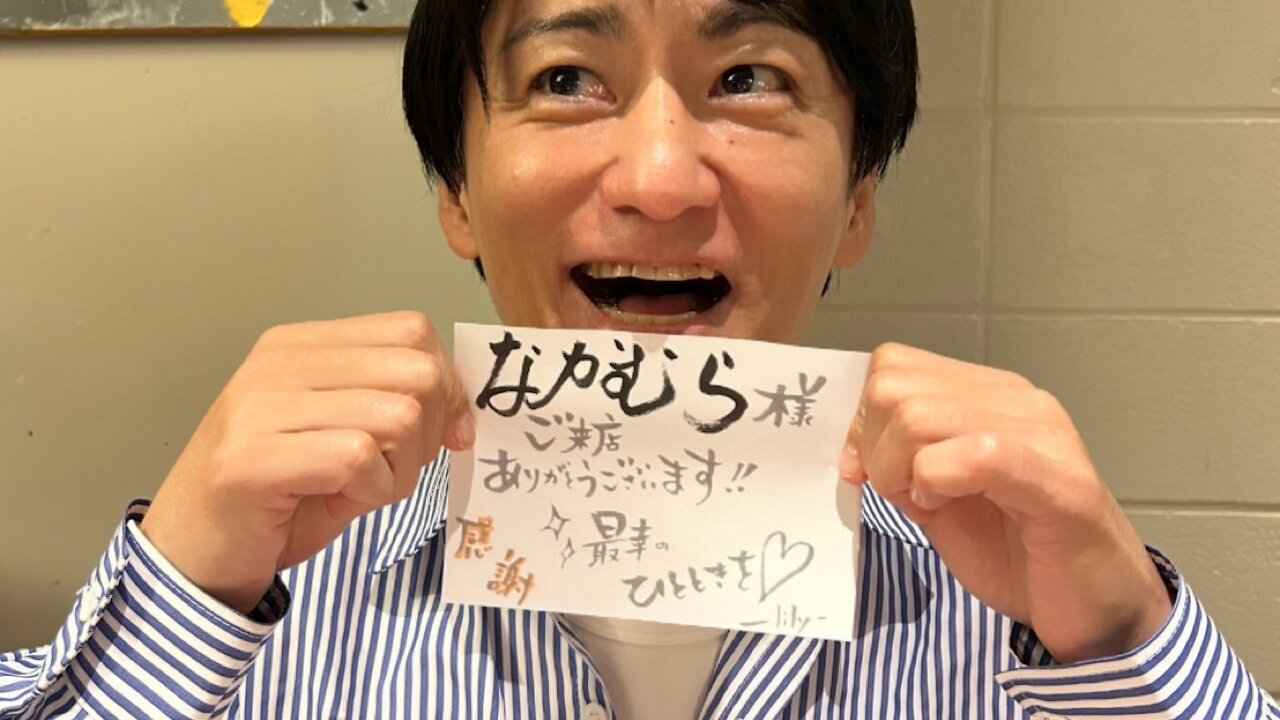 なかむら様
ご来店
ありがとうございます!!
感謝
最幸の
ひとときを♡
-lily-